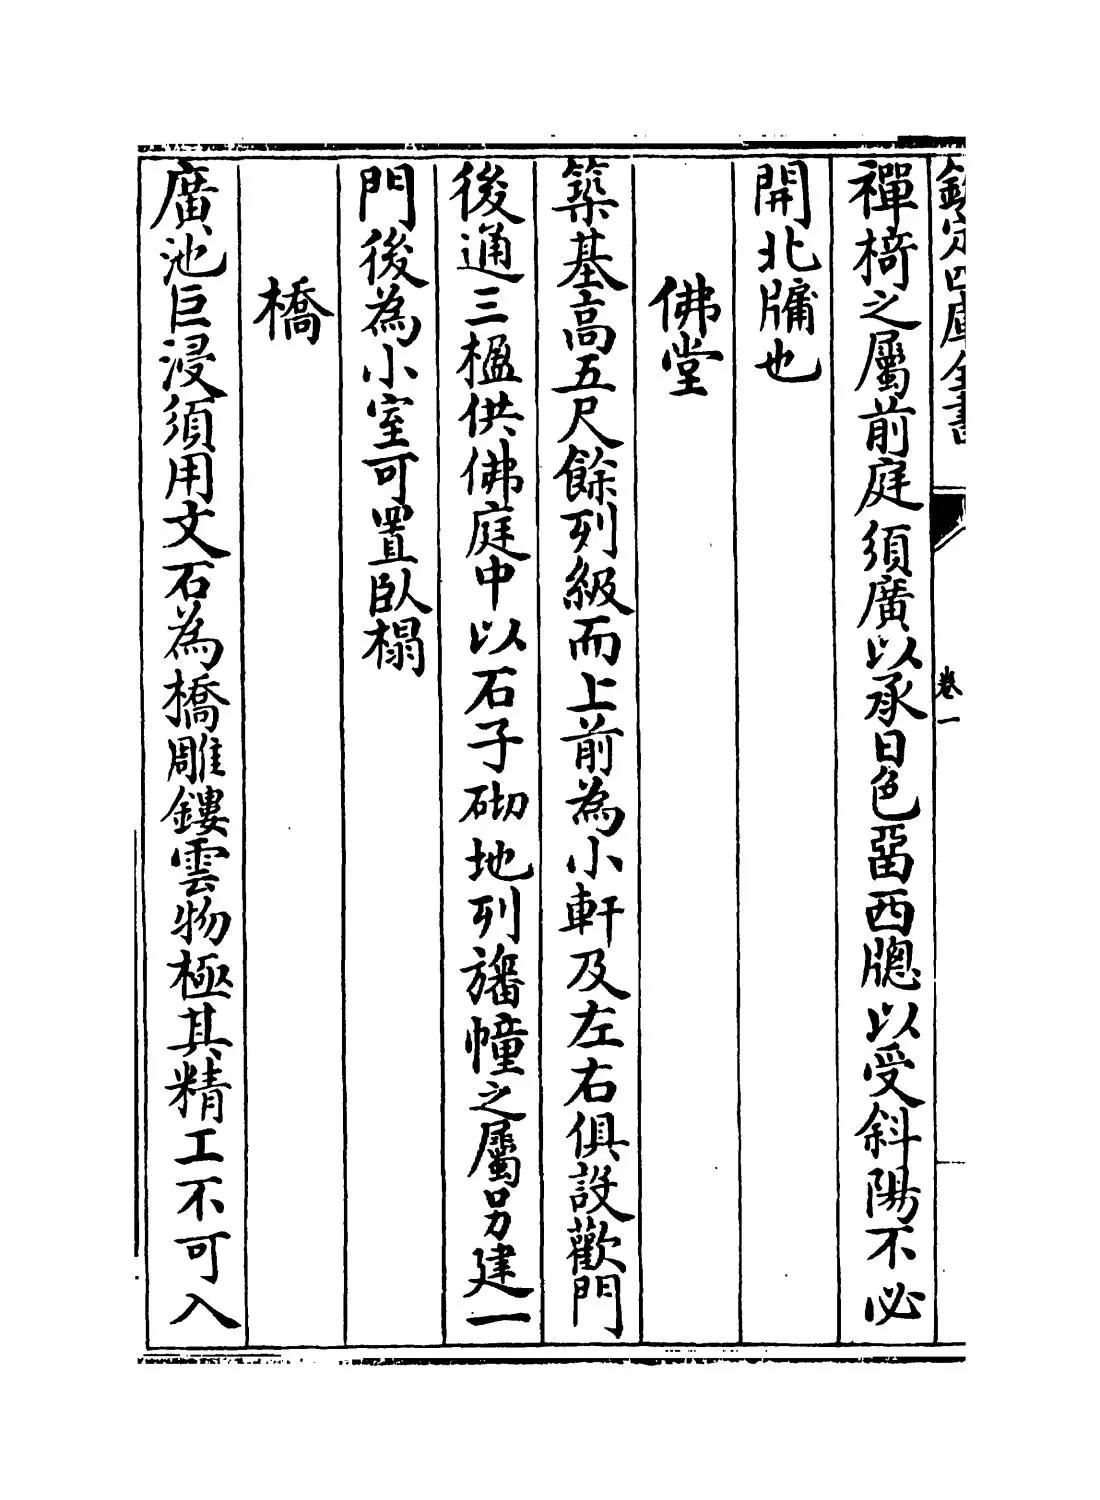 欽定四庫全書
卷一
禪椅之屬前庭須廣以承日色畱西牕以受斜陽不必
開北牖也
佛堂
築基高五尺餘列級而上前為小軒及左右俱設歡門
後通三楹供佛庭中以石子砌地列旛幢之屬另建一
門後為小室可置臥榻
橋
廣池巨浸須用文石為橋雕鏤雲物極其精工不可入